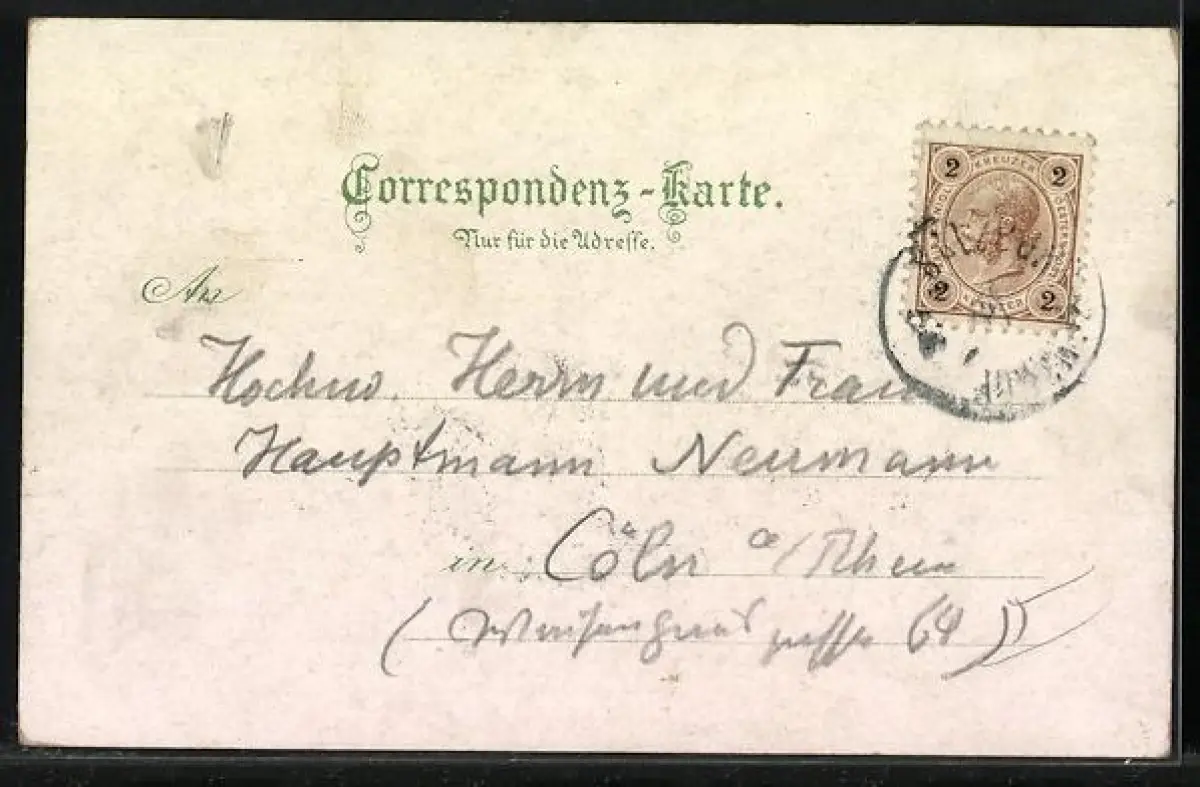 Correspondenz-Karte.
Nur für die Adresse.
2 KREUZER 2
2 2
An
Hochw. Herrn und Frau
Hauptmann Neumann
in Cöln a/Rhein
( gasse 64 )